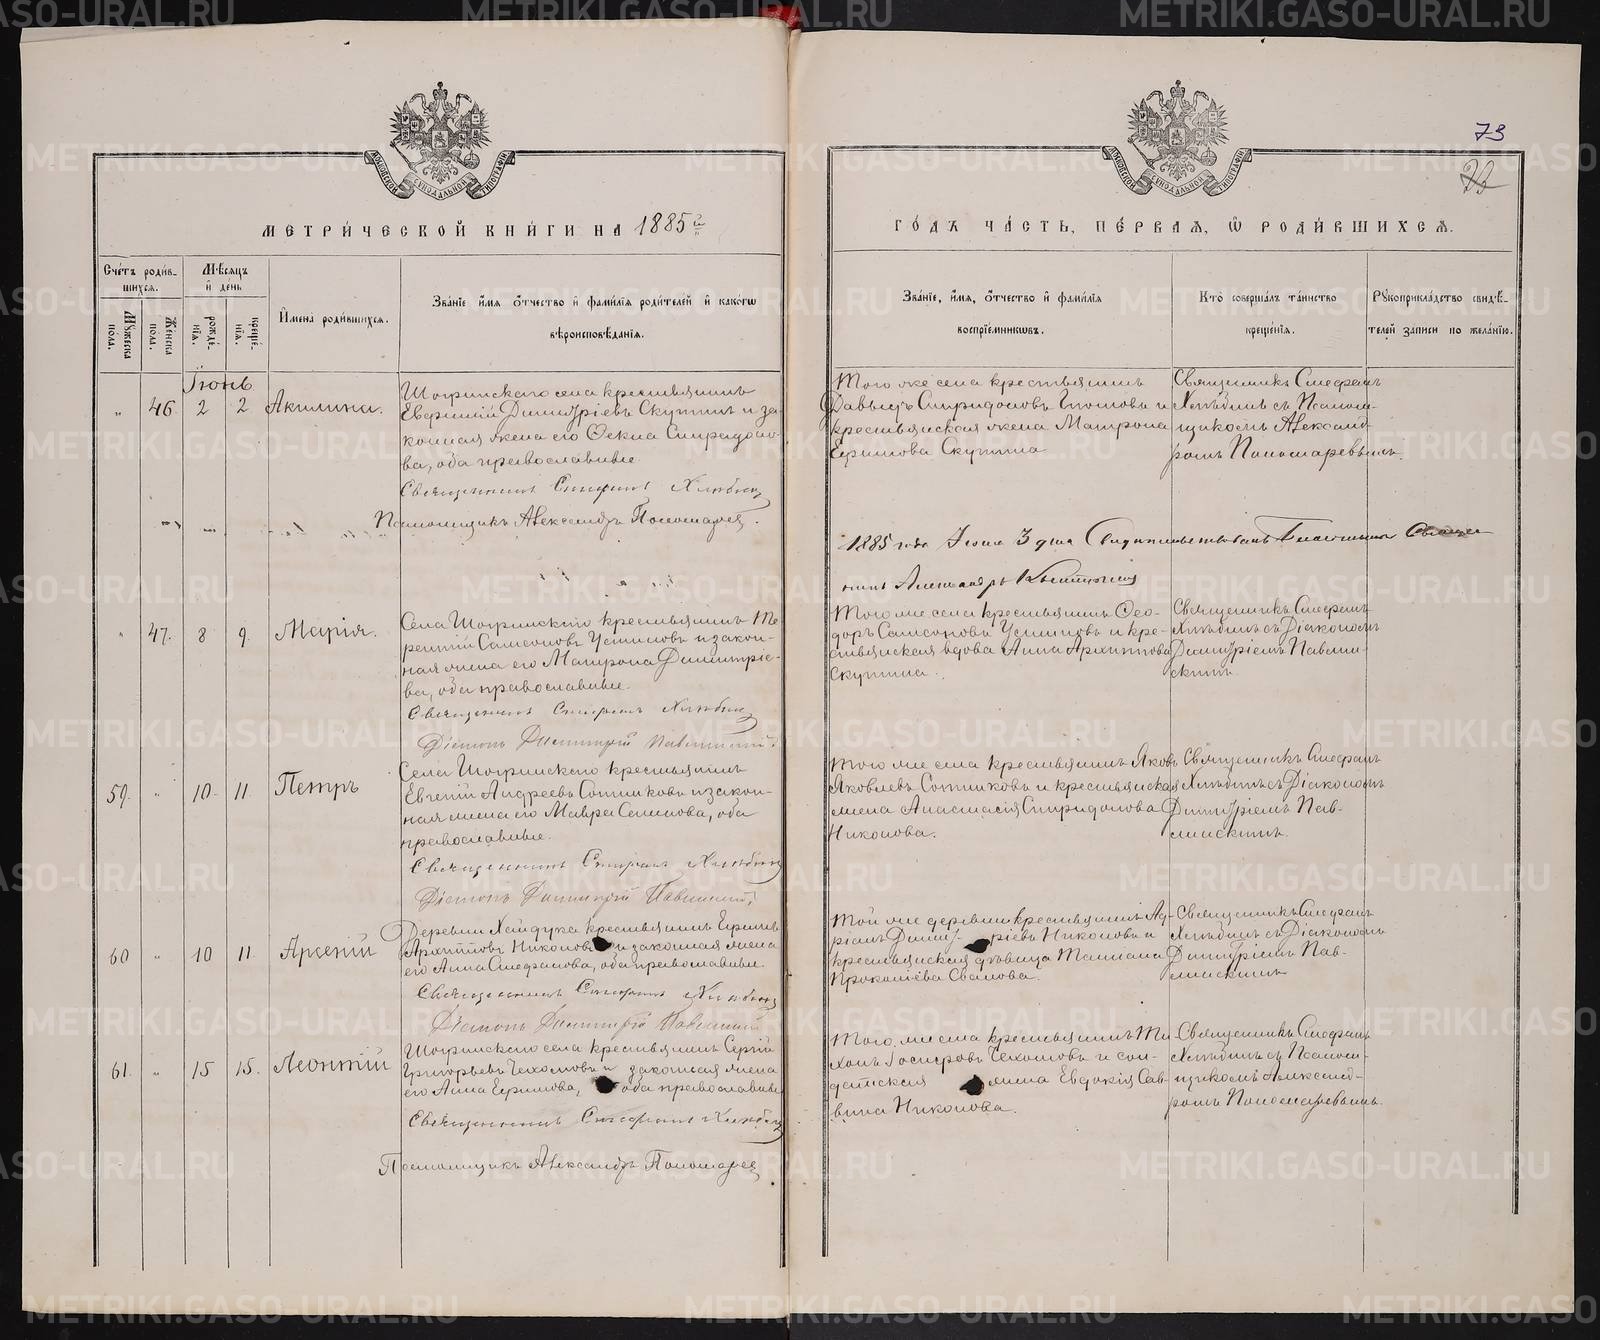 МЕТРИ́ЧЕСКОЙ КНИ́ГИ НА 1885 й
ГО́ДЪ ЧА́СТЬ, ПЕ́РВАЯ, Ѽ РОДИ́ВШИХСЯ.
73
Сче́тъ роди́в-
шихся.
Мꙋ́жеска по́ла.
Же́нска по́ла.
Мѣ́сяцъ
и҆ де́нь
рожде́-
нїя.
креще́-
нїя.
И҆мена̀ роди́вшихся.
Зва́нїе и҆́мя ѻ҆́тчество и҆ фами́лїя роди́телей и҆ како́гѡ
вѣроисповѣ́данїя.
Зва́нїе, и҆́мя, ѻ҆́тчество и҆ фами́лїя
воспрїе́мниковъ.
Кто̀ соверша́лъ та́инство
креще́нїя.
Рꙋкоприкла́дство свидѣ́-
телей за́писи по жела́нїю.
Іюнь
„ 46 2 2 Акилина.
Шогринскаго села крестьянинъ
Евфимій Димитріевъ Скутинъ и за-
конная жена его Ѳекла Спиридоно-
ва, оба православные.
Священникъ Стефанъ Хлѣбинъ
Псаломщикъ Александръ Пономаревъ.
Того же села крестьянинъ
Давыдъ Спиридоновъ и
крестьянская жена Матрона
Ефимова Скутина
Священникъ Стефанъ
Хлѣбинъ съ Псалом-
щикомъ Александ-
ромъ Пономаревымъ.
1885 года Іюня 3 дня Свидѣтельствовалъ Благочинный Священ
никъ Александръ
„ 47. 8 9. Марія.
Села Шогринскаго крестьянинъ Те-
рентій Самсоновъ Устиновъ и закон-
ная жена его Матрона Димитріе-
ва, оба православные.
Священникъ Стефанъ Хлѣбинъ
Діаконъ Димитрій
Того же села крестьянинъ Ѳео-
доръ Самсоновъ Устиновъ и кре-
стьянская вдова Анна Архиппова
Скутина.
Священникъ Стефанъ
Хлѣбинъ съ Діакономъ
Димитріемъ Павлин-
скимъ.
59. „ 10 11 Петръ
Села Шогринскаго крестьянинъ
Евгеній Андреевъ Сотниковъ и закон-
ная жена его Мавра Семенова, оба
православные.
Священникъ Стефанъ Хлѣбинъ
Діаконъ Димитрій
Того же села крестьянинъ Яковъ
Яковлевъ Сотниковъ и крестьянская
жена Анастасія Спиридонова
Никонова.
Священникъ Стефанъ
Хлѣбинъ съ Діакономъ
Димитріемъ Пав-
линскимъ.
60 „ 10 11 Арсеній
Деревни Хайдука крестьянинъ Ефимъ
Архипповъ Никоновъ и законная жена
его Анна Стефанова, оба православные.
Священникъ Стефанъ Хлѣбинъ
Діаконъ Димитрій
Той же деревни крестьянинъ Ад-
ріанъ Димитріевъ Никоновъ и
крестьянская дѣвица Татіана
Прокопіева
Священникъ Стефанъ
Хлѣбинъ съ Діакономъ
Димитріемъ Пав-
линскимъ
61. „ 15 15. Леонтій
Шогринскаго села крестьянинъ Сергій
Григорьевъ Чехомовъ и законная жена
его Анна Ефимова, оба православные
Священникъ Стефанъ Хлѣбинъ
Псаломщикъ Александръ Пономаревъ
Того же села крестьянинъ Ти-
хонъ Чехомовъ и сол-
датская жена Евдокія Сав-
вина Никонова.
Священникъ Стефанъ
Хлѣбинъ съ Псалом-
щикомъ Александ-
ромъ Пономаревымъ.
METRIKI.GASO-URAL.RU